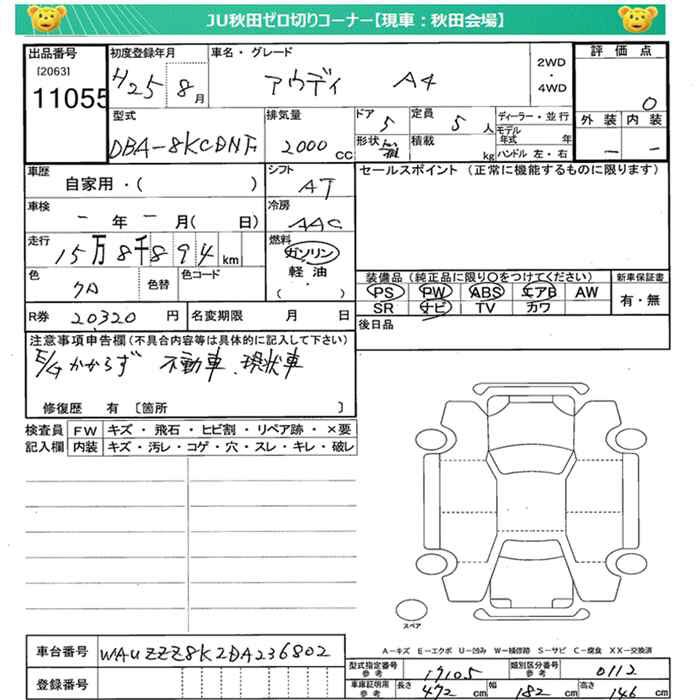 JU秋田ゼロ切りコーナー【現車：秋田会場】
出品番号 初度登録年月 車名・グレード 評価点
[2063] H25 8月 アウディ A4 2WD・4WD
11055 0
型式 排気量 ドア 定員 ディーラー・並行 外装 内装
DBA-8KCDNF 2000cc 5 5人 モデル年式 年
形状 箱 積載 kg ハンドル 左・右 ー ー
車歴 シフト セールスポイント（正常に機能するものに限ります）
自家用・( ) AT
車検 冷房
ー年ー月( 日) AAC
走行 燃料
15万8千894km ガソリン
軽油
( )
色 色替 色コード 装備品（純正品に限り○をつけてください） 新車保証書
クロ PS PW ABS エアB AW 有・無
SR ナビ TV カワ
R券 20,320円 名変期限 月 日 後日品
注意事項申告欄(不具合内容等は具体的に記入して下さい)
E/Gかからず 不動車、現状車
修復歴 有 〔箇所 〕
検査員 FW キズ・飛石・ヒビ割・リペア跡・×要
記入欄 内装 キズ・汚レ・コゲ・穴・スレ・キレ・破レ
スペア
A－キズ E－エクボ U－凹み W－補修跡 S－サビ C－腐食 XX－交換済
車台番号 WAUZZZ8K2DA236802
型式指定番号 参考 17105 類別区分番号 参考 0112
登録番号 車庫証明用 参考 長さ 472cm 幅 182cm 高さ 146cm